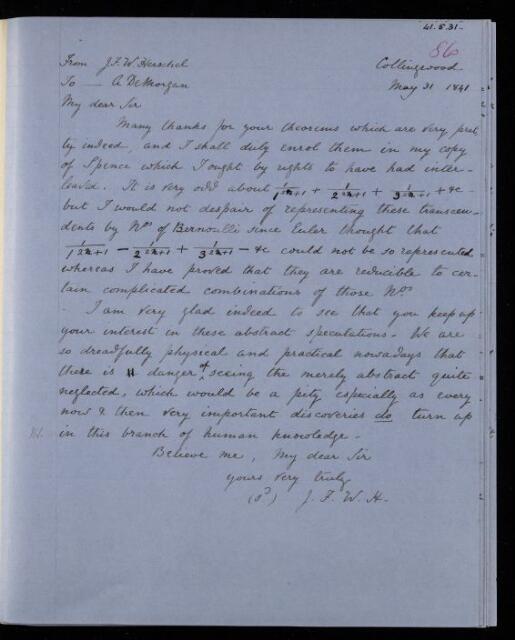 41.5.31-
86
From J.F.W. Herschel Collingwood
To — A DeMorgan May 31 1841
My dear Sir
Many thanks for your theorems which are very pret
ty indeed, and I shall duly enrol them in my copy
of Spence which I ought by rights to have had inter-
leaved. It is very odd about 1/1^{2n+1} + 1/2^{2n+1} + 1/3^{2n+1} + &c
but I would not despair of representing these transcen-
dents by Nos of Bernoulli since Euler thought that
1/1^{2n+1} - 1/2^{2n+1} + 1/3^{2n+1} - &c could not be so represented
whereas I have proved that they are reducible to cer-
tain complicated combinations of those Nos
I am very glad indeed to see that you keep up
your interest in these abstract speculations - We are
so dreadfully physical and practical nowadays that
there is danger of seeing the merely abstract quite
neglected, which would be a pity especially as every
now & then very important discoveries do turn up
in this branch of human knowledge -
Believe me, My dear Sir
yours very truly
(sd) J. F. W. H-